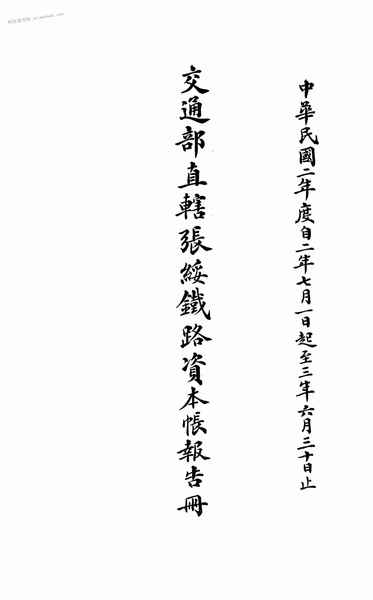 中華民國二年度自二年七月一日起至三年六月三十日止
交通部直轄張綏鐵路資本帳報告冊